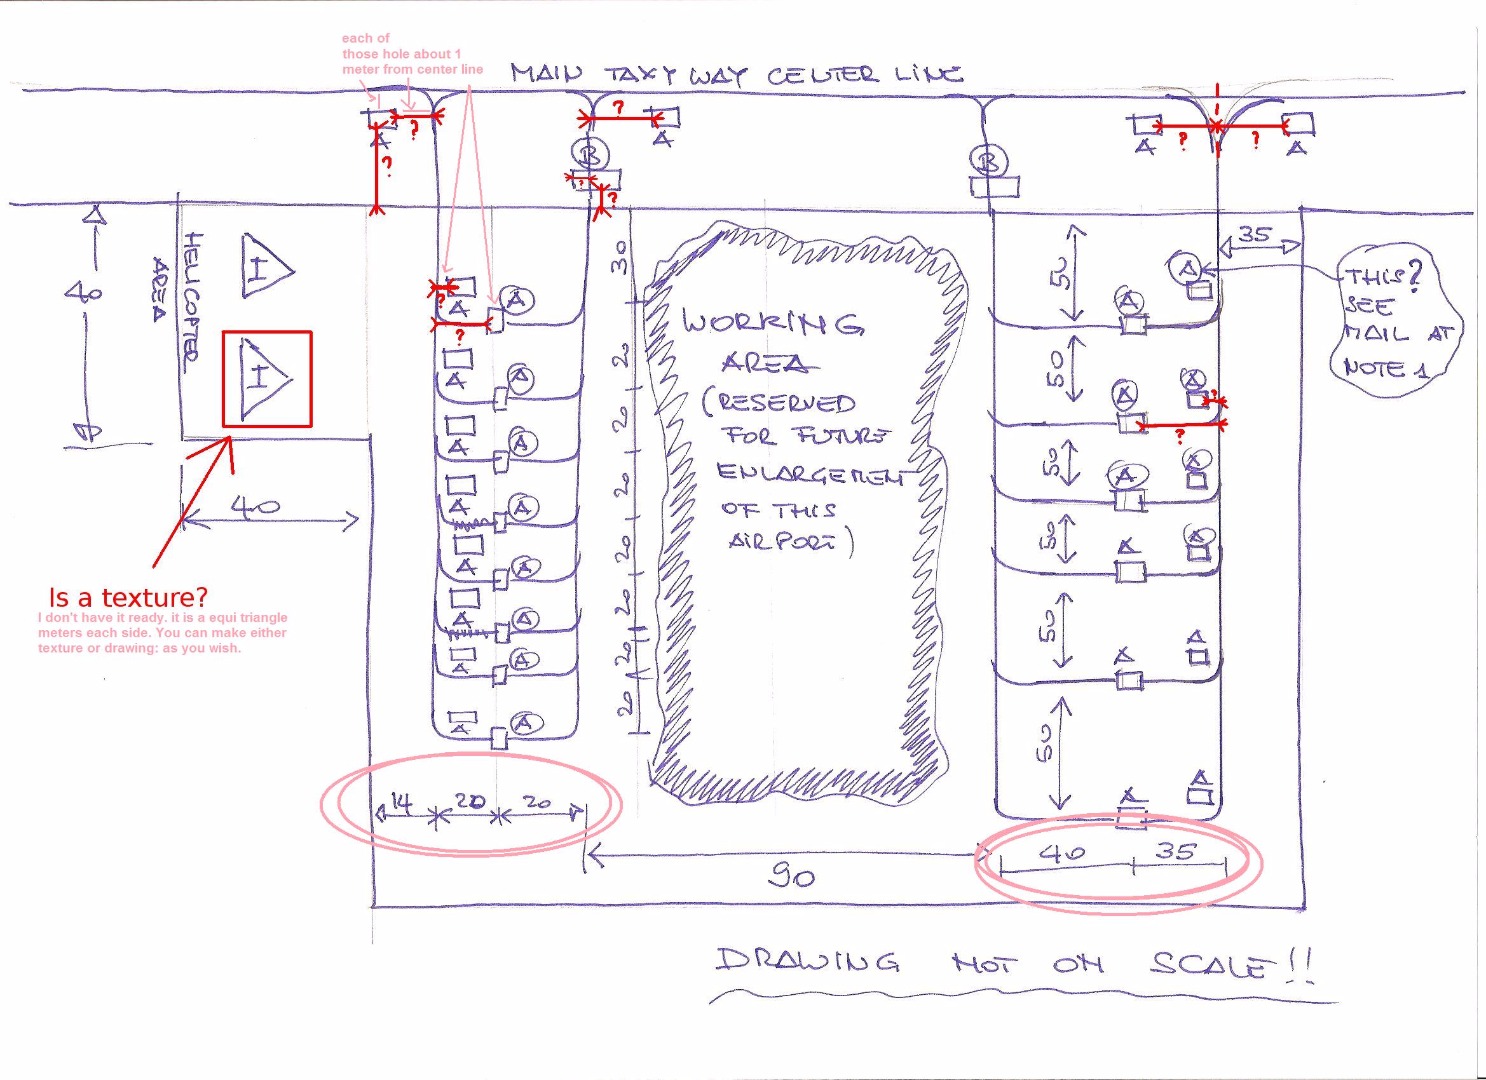 each of
those hole about 1
meter from center line
MAIN TAXY WAY CENTER LINE
A
?
?
?
A
B
?
?
B
A
?
?
A
40
HELICOPTER
AREA
H
H
40
Is a texture?
I don't have it ready. it is a equi triangle
meters each side. You can make either
texture or drawing: as you wish.
?
A
A
?
A
A
A
A
A
A
A
A
A
A
A
A
A
A
30
20
20
20
20
20
20
20
14
20
20
WORKING
AREA
(RESERVED
FOR FUTURE
ENLARGEMENT
OF THIS
AIRPORT)
90
50
50
50
50
50
50
35
A
A
A
A
?
?
A
A
A
A
A
A
A
A
40
35
THIS?
SEE
MAIL AT
NOTE 1
DRAWING NOT ON SCALE!!